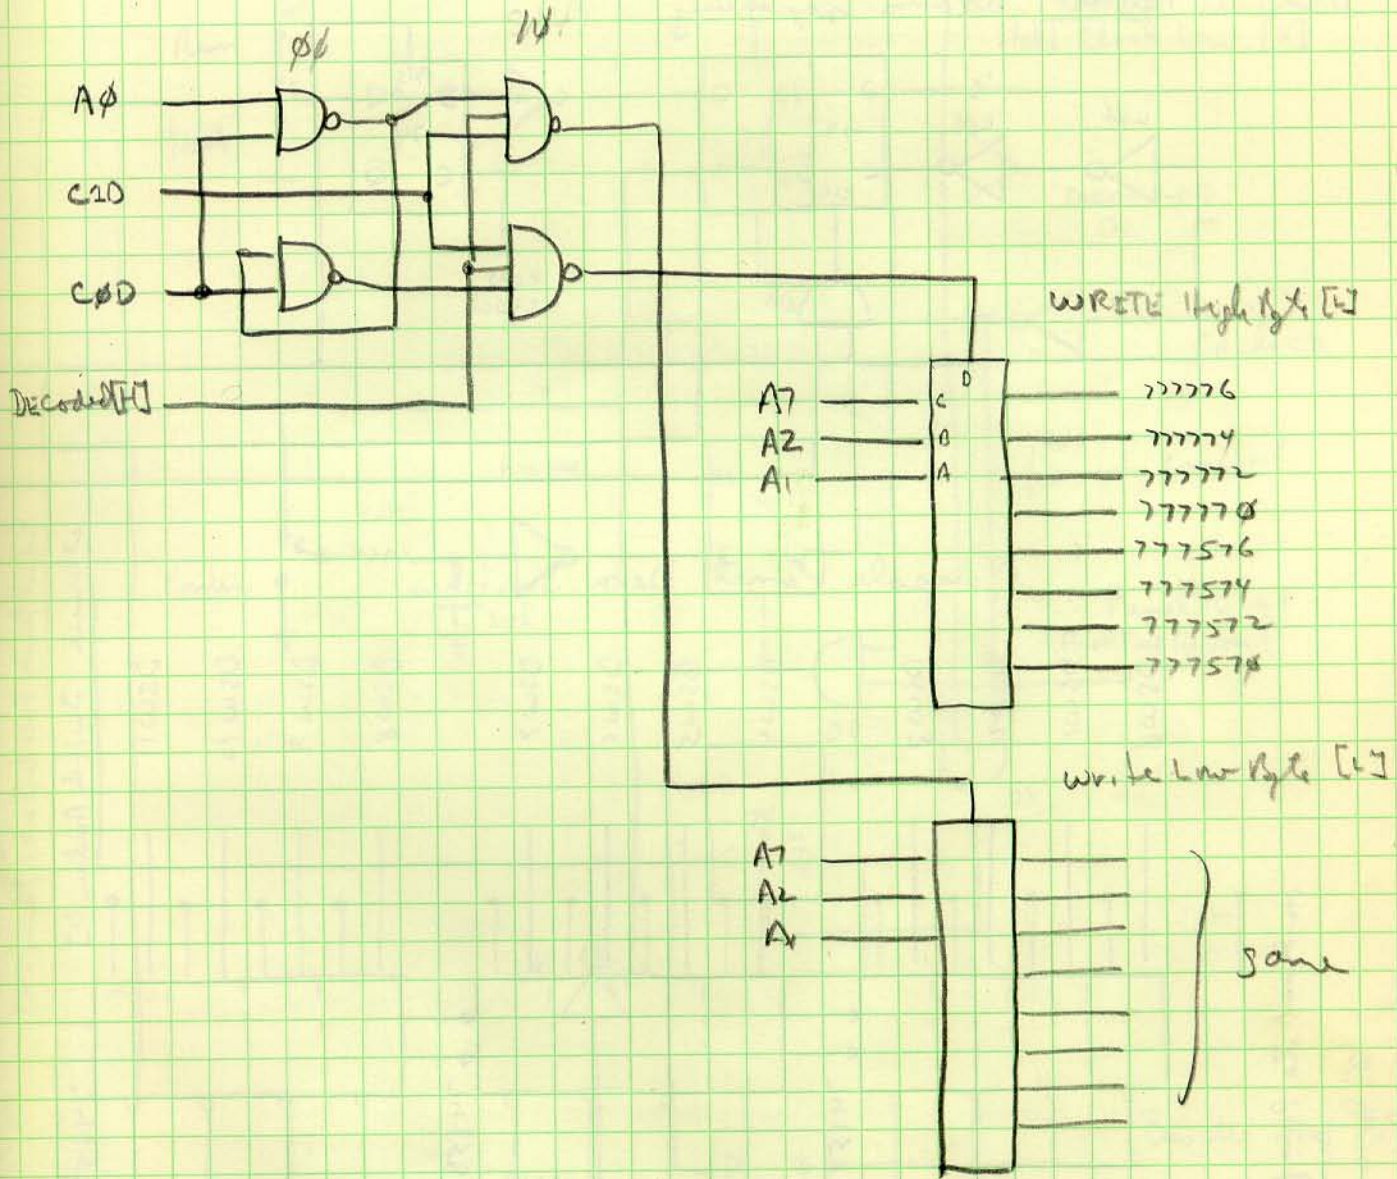 ØØ
1Ø
AØ
C1D
CØD
Decoded[H]
WRITE High Byte [L]
D
A7 C 777776
A2 B 777774
A1 A 777772
77777Ø
777576
777574
777572
77757Ø
Write Low Byte [L]
A7
A2
A1
same